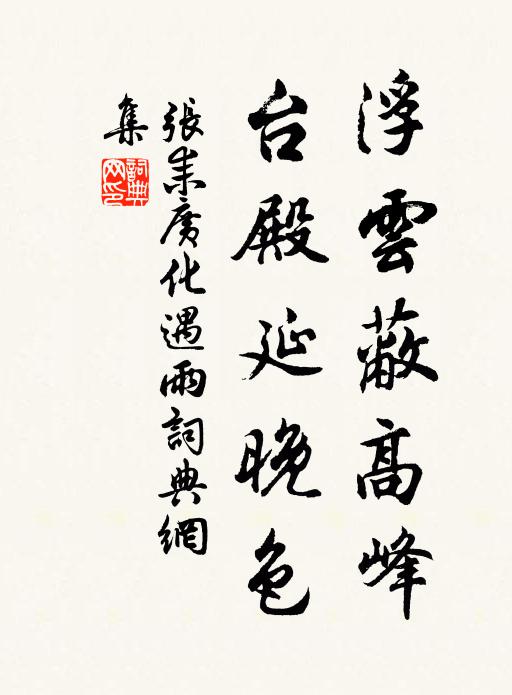 浮雲蔽高峰
台殿延晚色
張耒廣化遇雨詞典網
集
詞典網印